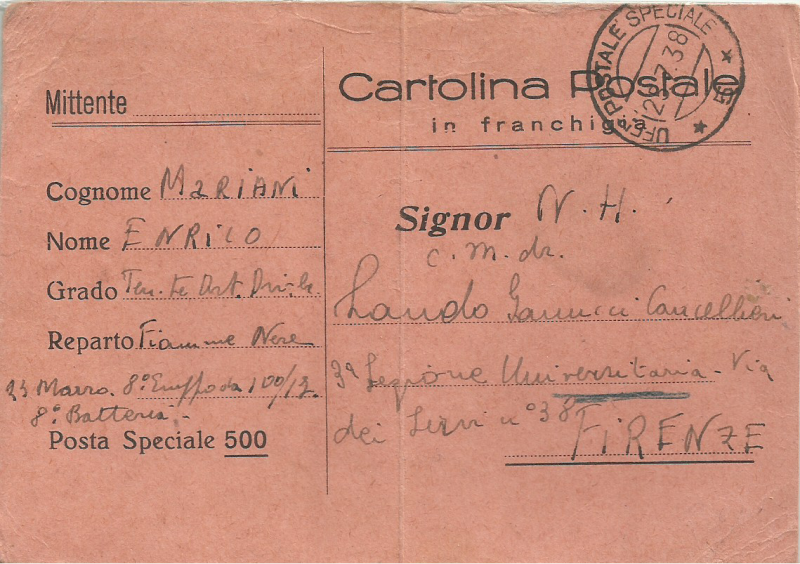 Mittente
Cognome MARIANI
Nome ENRICO
Grado Ten.te Art. Div.le
Reparto Fiamme Nere
23 Marzo. 8º 100/17
8ª Batteria.-
Posta Speciale 500
Cartolina Postale
in franchigia
UFF. POSTALE SPECIALE
.7.38
Signor N. H.
C. M. dr.
Lando Cancellieri
3ª Legione Universitaria - Via
dei Servi nº 38
FIRENZE